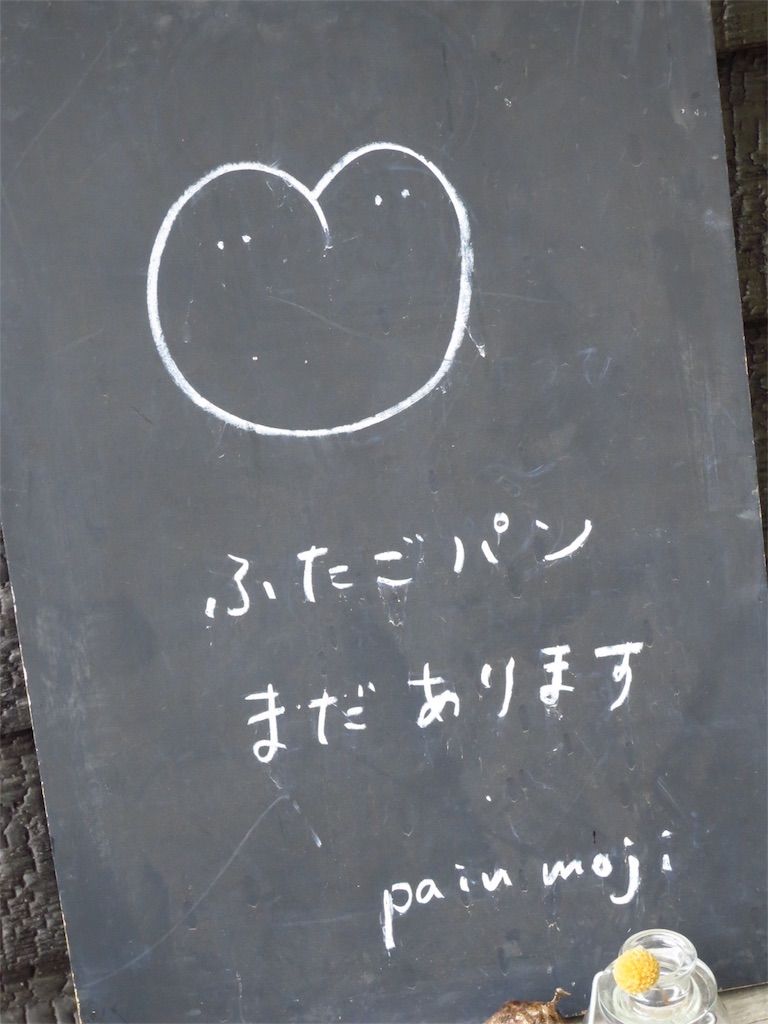 ふたごパン
まだあります
pain moji